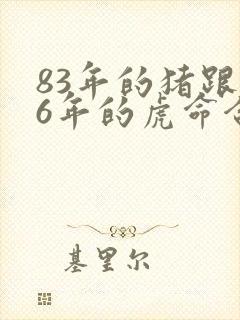 83年的猪跟
6年的虎命合
基里尔